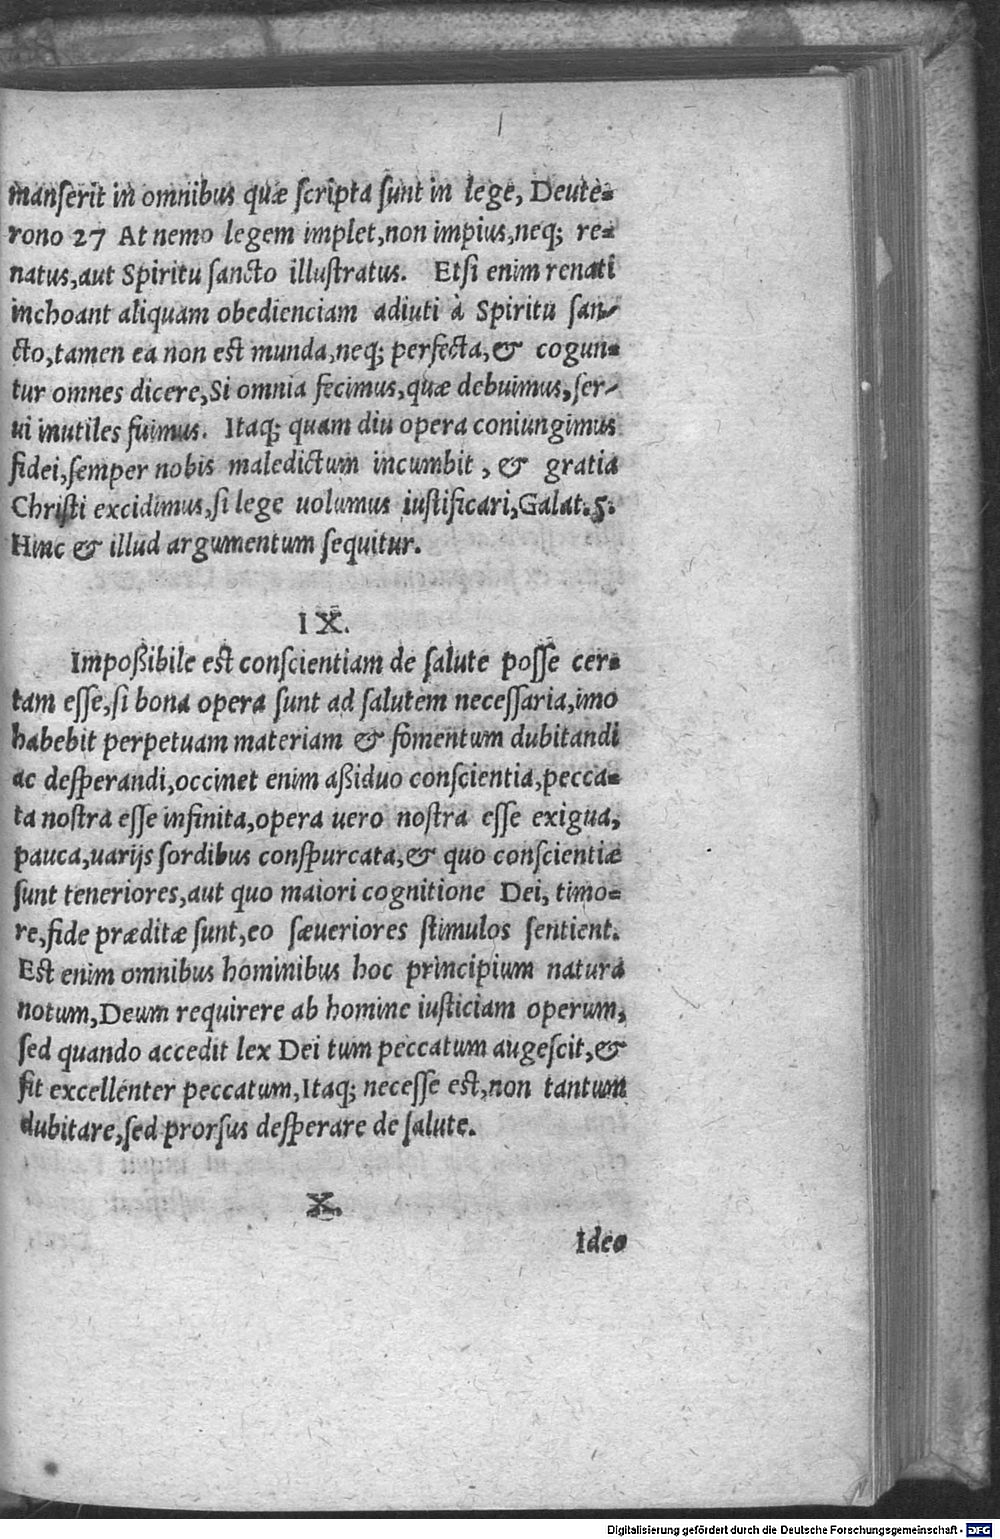 manſerit in omnibus quæ ſcripta ſunt in lege, Deute-
rono 27 At nemo legem implet, non impius, neq; re-
natus, aut Spiritu ſancto illuſtratus. Etſi enim renati
inchoant aliquam obedienciam adiuti à Spiritu ſan-
cto, tamen ea non eſt munda, neq; perfecta, & cogun-
tur omnes dicere, Si omnia fecimus, quæ debuimus, ſer-
ui inutiles fuimus. Itaq; quam diu opera coniungimus
fidei, ſemper nobis maledictum incumbit, & gratia
Chriſti excidimus, ſi lege uolumus iuſtificari, Galat. 5.
Hinc & illud argumentum ſequitur.
IX.
Impoßibile eſt conſcientiam de ſalute poſſe cer-
tam eſſe, ſi bona opera ſunt ad ſalutem neceſſaria, imo
habebit perpetuam materiam & fomentum dubitandi
ac deſperandi, occinet enim aßiduo conſcientia, pecca-
ta noſtra eſſe infinita, opera uero noſtra eſſe exigua,
pauca, uarijs ſordibus conſpurcata, & quo conſcientiæ
ſunt teneriores, aut quo maiori cognitione Dei, timo-
re, fide præditæ ſunt, eo ſæueriores ſtimulos ſentient.
Eſt enim omnibus hominibus hoc principium natura
notum, Deum requirere ab homine iuſticiam operum,
ſed quando accedit lex Dei tum peccatum augeſcit, &
fit excellenter peccatum, Itaq; neceſſe eſt, non tantum
dubitare, ſed prorſus deſperare de ſalute.
X.
Ideo
Digitalisierung gefördert durch die Deutsche Forschungsgemeinschaft - DFG